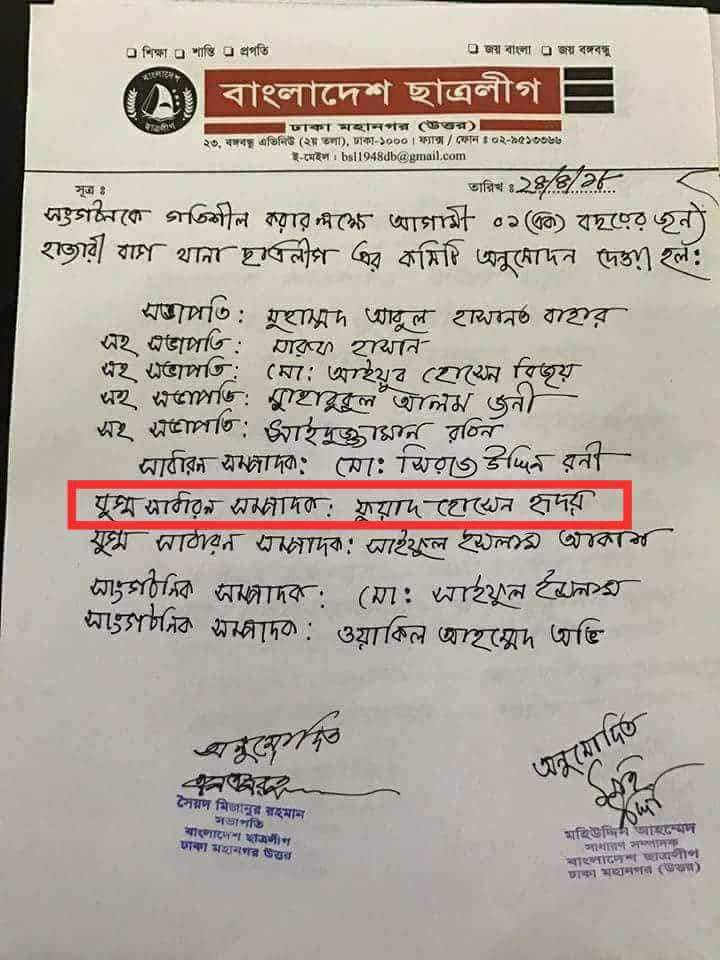 □ শিক্ষা □ শান্তি □ প্রগতি
□ জয় বাংলা □ জয় বঙ্গবন্ধু
বাংলাদেশ
ছাত্রলীগ
বাংলাদেশ ছাত্রলীগ
ঢাকা মহানগর (উত্তর)
২৩, বঙ্গবন্ধু এভিনিউ (২য় তলা), ঢাকা-১০০০। ফ্যাক্স / ফোন ঃ ০২-৯৫১৩৩৬৬
ই-মেইল : bsl1948db@gmail.com
সূত্র ঃ
তারিখ ঃ
সংগঠনকে গতিশীল করার লক্ষে আগামী ০১ (এক) বছরের জন্য
হাজারী বাগ থানা ছাত্রলীগ এর কমিটি অনুমোদন দেওয়া হল:
সভাপতি: মুহাম্মদ আবুল হাসানাত বাহার
সহ সভাপতি: মারুফ হাসান
সহ সভাপতি: মো: আইয়ুব হোসেন বিজয়
সহ সভাপতি: মাহাবুবুল আলম জনী
সহ সভাপতি: সাইদুজ্জামান রবিন
সাধারন সম্পাদক: মো: সিরাজ উদ্দিন রনী
যুগ্ম সাধারন সম্পাদক: ফুয়াদ হোসেন হৃদয়
যুগ্ম সাধারন সম্পাদক: সাইফুল ইসলাম আকাশ
সাংগঠনিক সম্পাদক: মো: সাইফুল ইসলাম
সাংগঠনিক সম্পাদক: ওয়াকিল আহম্মেদ অভি
অনুমোদিত
সৈয়দ মিজানুর রহমান
সভাপতি
বাংলাদেশ ছাত্রলীগ
ঢাকা মহানগর উত্তর
অনুমোদিত
মহিউদ্দিন আহম্মেদ
সাধারণ সম্পাদক
বাংলাদেশ ছাত্রলীগ
ঢাকা মহানগর (উত্তর)